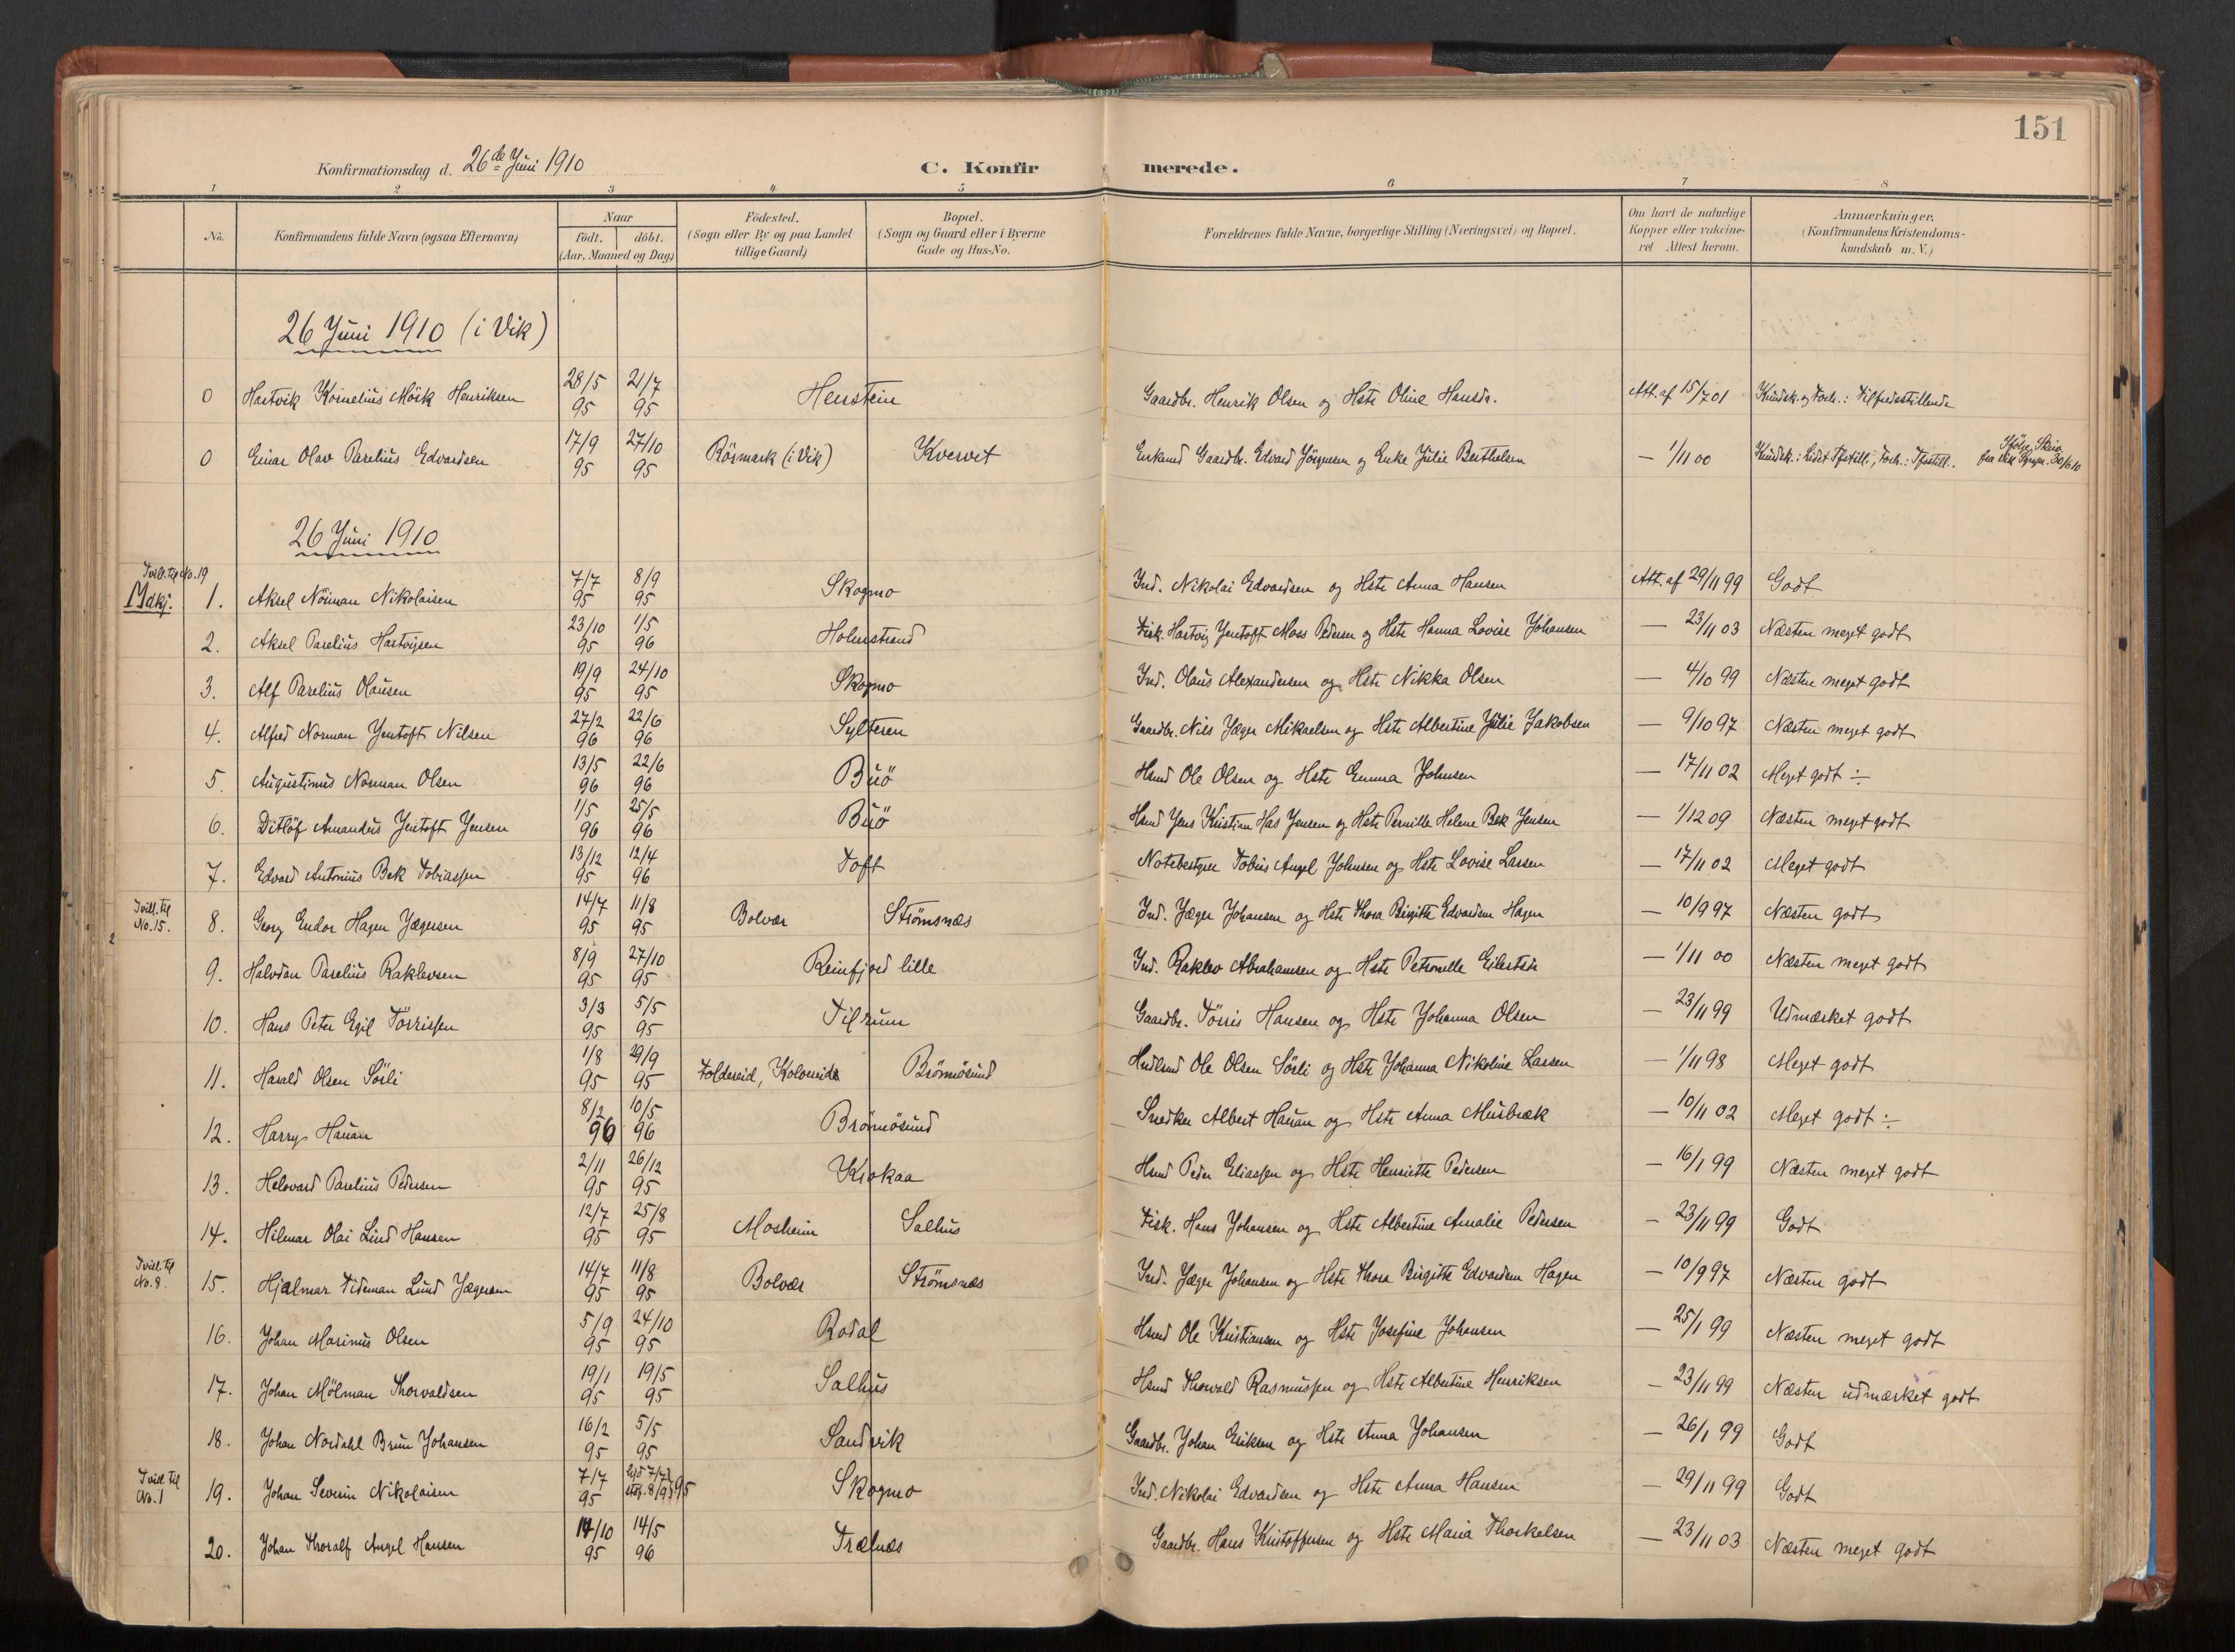 151
Konfirmationsdag d. 26de Juni 1910
C. Konfirmerede.
1 2 3 4 5 6 7 8
No.
Konfirmandens fulde Navn (ogsaa Efternavn)
Naar
födt. döbt.
(Aar, Maaned og Dag)
Födested.
(Sogn eller By og paa Landet
tillige Gaard)
Bopæl.
(Sogn og Gaard eller i Byerne
Gade og Hus-No.
Forældrenes fulde Navne, borgerlige Stilling (Næringsvei) og Bopæl.
Om havt de naturlige
Kopper eller vakcine-
ret Attest herom.
Anmærkninger,
(Konfirmandens Kristendoms-
kundskab m. V.)
26 Juni 1910 (i Vik)
0 Hartvik Kornelius Mörk Henriksen 28/5 95 21/7 95 Henstein Gaardbr. Henrik Olsen og Hstr Oline Hansdr. Att. af 15/7 01 Kundsk. og Forh.: Tilfredsstillende
0 Einar Olav Parelius Edvardsen 17/9 95 27/10 95 Rörmark (i Vik) Kvervet Enkemd Gaardbr. Edvard Jörgensen og Enke Julie Berthelsen — 1/11 00 Kundsk.: Lidet Tfstill., Forh.: Tfstill. Ifölge Skriv. fra Vik Sgnpr. 30/6 10
26 Juni 1910
Tvill. til No. 19
Mdkj. 1. Aksel Nörman Nikolaisen 7/7 95 8/9 95 Skogmo Ind. Nikolai Edvardsen og Hstr Anna Hansen Att. af 29/11 99 Godt
2. Aksel Parelius Hartvigsen 23/10 95 1/5 96 Holmstrand Fisk. Hartvig Jentoft Moss Pedersen og Hstr Hanna Lovise Johansen — 23/11 03 Næsten meget godt
3. Alf Parelius Olausen 19/9 95 24/10 95 Skogmo Ind. Olaus Alexandersen og Hstr Nikka Olsen — 4/10 99 Næsten meget godt
4. Alfred Norman Jentoft Nilsen 27/2 96 22/6 96 Sylteren Gaardbr. Nils Jæger Mikaelsen og Hstr Albertine Julie Jakobsen — 9/10 97 Næsten meget godt
5. Augustinus Norman Olsen 13/5 96 22/6 96 Buö Hsmd Ole Olsen og Hstr Emma Johnsen — 17/11 02 Meget godt ÷
6. Ditlöf Amandus Jentoft Jensen 1/5 96 25/5 96 Buö Hsmd Jens Kristian Has Jensen og Hstr Pernille Helene Bek Jensen — 1/12 09 Næsten meget godt
7. Edvard Antonius Bek Tobiassen 13/12 95 12/4 96 Toft Notebestyrer Tobias Angel Johnsen og Hstr Lovise Larsen — 17/11 02 Meget godt
Tvill. til No. 15. 8. Georg Endor Hagen Jægersen 14/7 95 11/8 95 Bolvær Strömsnæs Ind. Jæger Johansen og Hstr Thora Birgitte Edvardsen Hagen — 10/9 97 Næsten godt
9. Halvdan Parelius Raklevsen 8/9 95 27/10 95 Reinfjord lille Ind. Raklev Abrahamsen og Hstr Petronelle Eilertsdr — 1/11 00 Næsten meget godt
10. Hans Peter Egil Törrissen 3/3 95 5/5 95 Tilrum Gaardbr. Törris Hansen og Hstr Johanna Olsen — 23/11 99 Udmærket godt
11. Harald Olsen Sörli 1/8 95 29/9 95 Foldereid, Kolvereid Brönnösund Hndlsmd Ole Olsen Sörli og Hstr Johanna Nikoline Larsen — 1/11 98 Meget godt
12. Harry Hauan 8/2 96 10/5 96 Brönnösund Snedker Albert Hauan og Hstr Anna Musbæk — 10/11 02 Meget godt ÷
13. Helovard Parelius Pedersen 2/11 95 26/12 95 Krokaa Hsmd Peder Eliassen og Hstr Henriette Pedersen — 16/1 99 Næsten meget godt
14. Hilmar Olai Lind Hansen 12/7 95 25/8 95 Mosheim Salhus Fisk. Hans Johansen og Hstr Albertine Amalie Pedersen — 23/11 99 Godt
Tvill. til No. 8. 15. Hjalmar Tideman Lund Jægersen 14/7 95 11/8 95 Bolvær Strömsnæs Ind. Jæger Johansen og Hstr Thora Birgitte Edvardsen Hagen — 10/9 97 Næsten godt
16. Johan Marinus Olsen 5/9 95 24/10 95 Rodal Hsmd Ole Kristiansen og Hstr Josefine Johansen — 25/1 99 Næsten meget godt
17. Johan Mölman Thorvaldsen 19/1 95 19/5 95 Salhus Hsmd Thorvald Rasmussen og Hstr Albertine Henriksen — 23/11 99 Næsten udmærket godt
18. Johan Nordahl Bruun Johansen 16/2 95 5/5 95 Sandvik Gaardbr. Johan Eriksen og Hstr Anna Johansen — 26/1 99 Godt
Tvill. til No. 1 19. Johan Severin Nikolaisen 7/7 95 hjd 7/7 stf. 8/9 95 Skogmo Ind. Nikolai Edvardsen og Hstr Anna Hansen — 29/11 99 Godt
20. Johan Thoralf Angel Hansen 14/10 95 14/5 96 Trælnæs Gaardbr. Hans Kristoffersen og Hstr Maria Thorkelsen — 23/11 03 Næsten meget godt